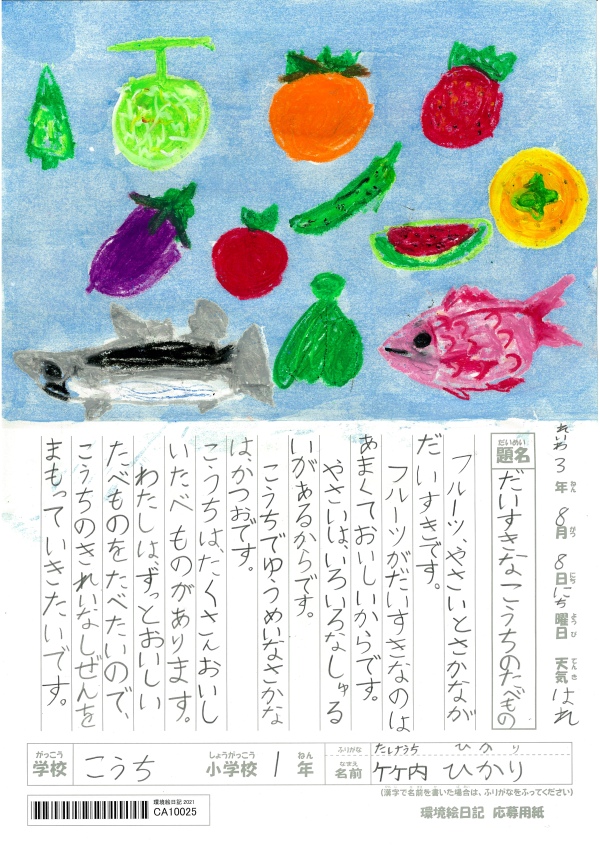 れいわ3年ねん8月がつ8日にちにち曜日ようび 天気てんきはれ
題名だいめい だいすきなこうちのたべもの
フルーツ、やさいとさかなが
だいすきです。
フルーツがだいすきなのは
あまくておいしいからです。
やさいは、いろいろなしゅる
いがあるからです。
こうちでゆうめいなさかな
は、かつおです。
こうちは、たくさんおいし
いたべものがあります。
わたしは、ずっとおいしい
たべものをたべたいので、
こうちのきれいなしぜんを
まもっていきたいです。
がっこう しょうがっこう ねん ふりがな たけうち ひかり
学校 こうち 小学校 1年 なまえ 名前 竹内 ひかり
(漢字で名前を書いた場合は、ふりがなをふってください)
環境絵日記 応募用紙
環境絵日記 2021
CA10025